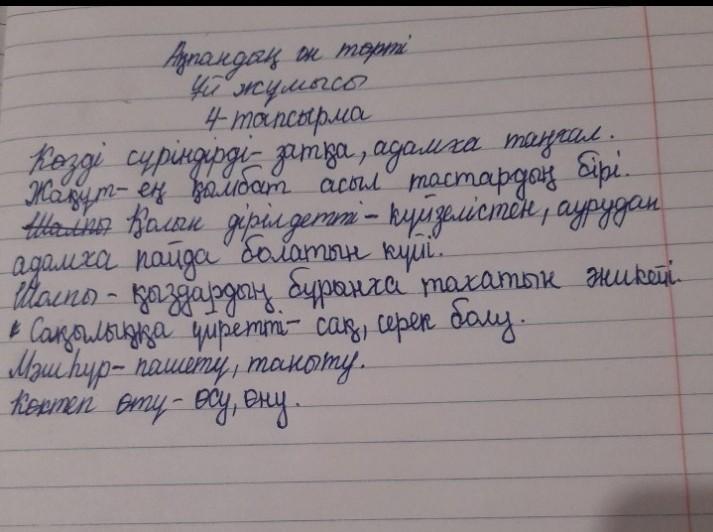 Ақпандың он төрті
Үй жұмысы
4-тапсырма
Көзді сүріндірді- затқа, адамға таңғал.
Жақұт- ең қымбат асыл тастардың бірі.
Шолпы Қолын дірілдетті- күйзелістен, аурудан
адамға пайда болатын күйі.
Шолпы - қыздардың бұрынға тағатын
Сақылыққа үиретті- сақ, серек болу.
Мәшһүр- паш ету, таныту.
Көктеп өту- өсу, өну.